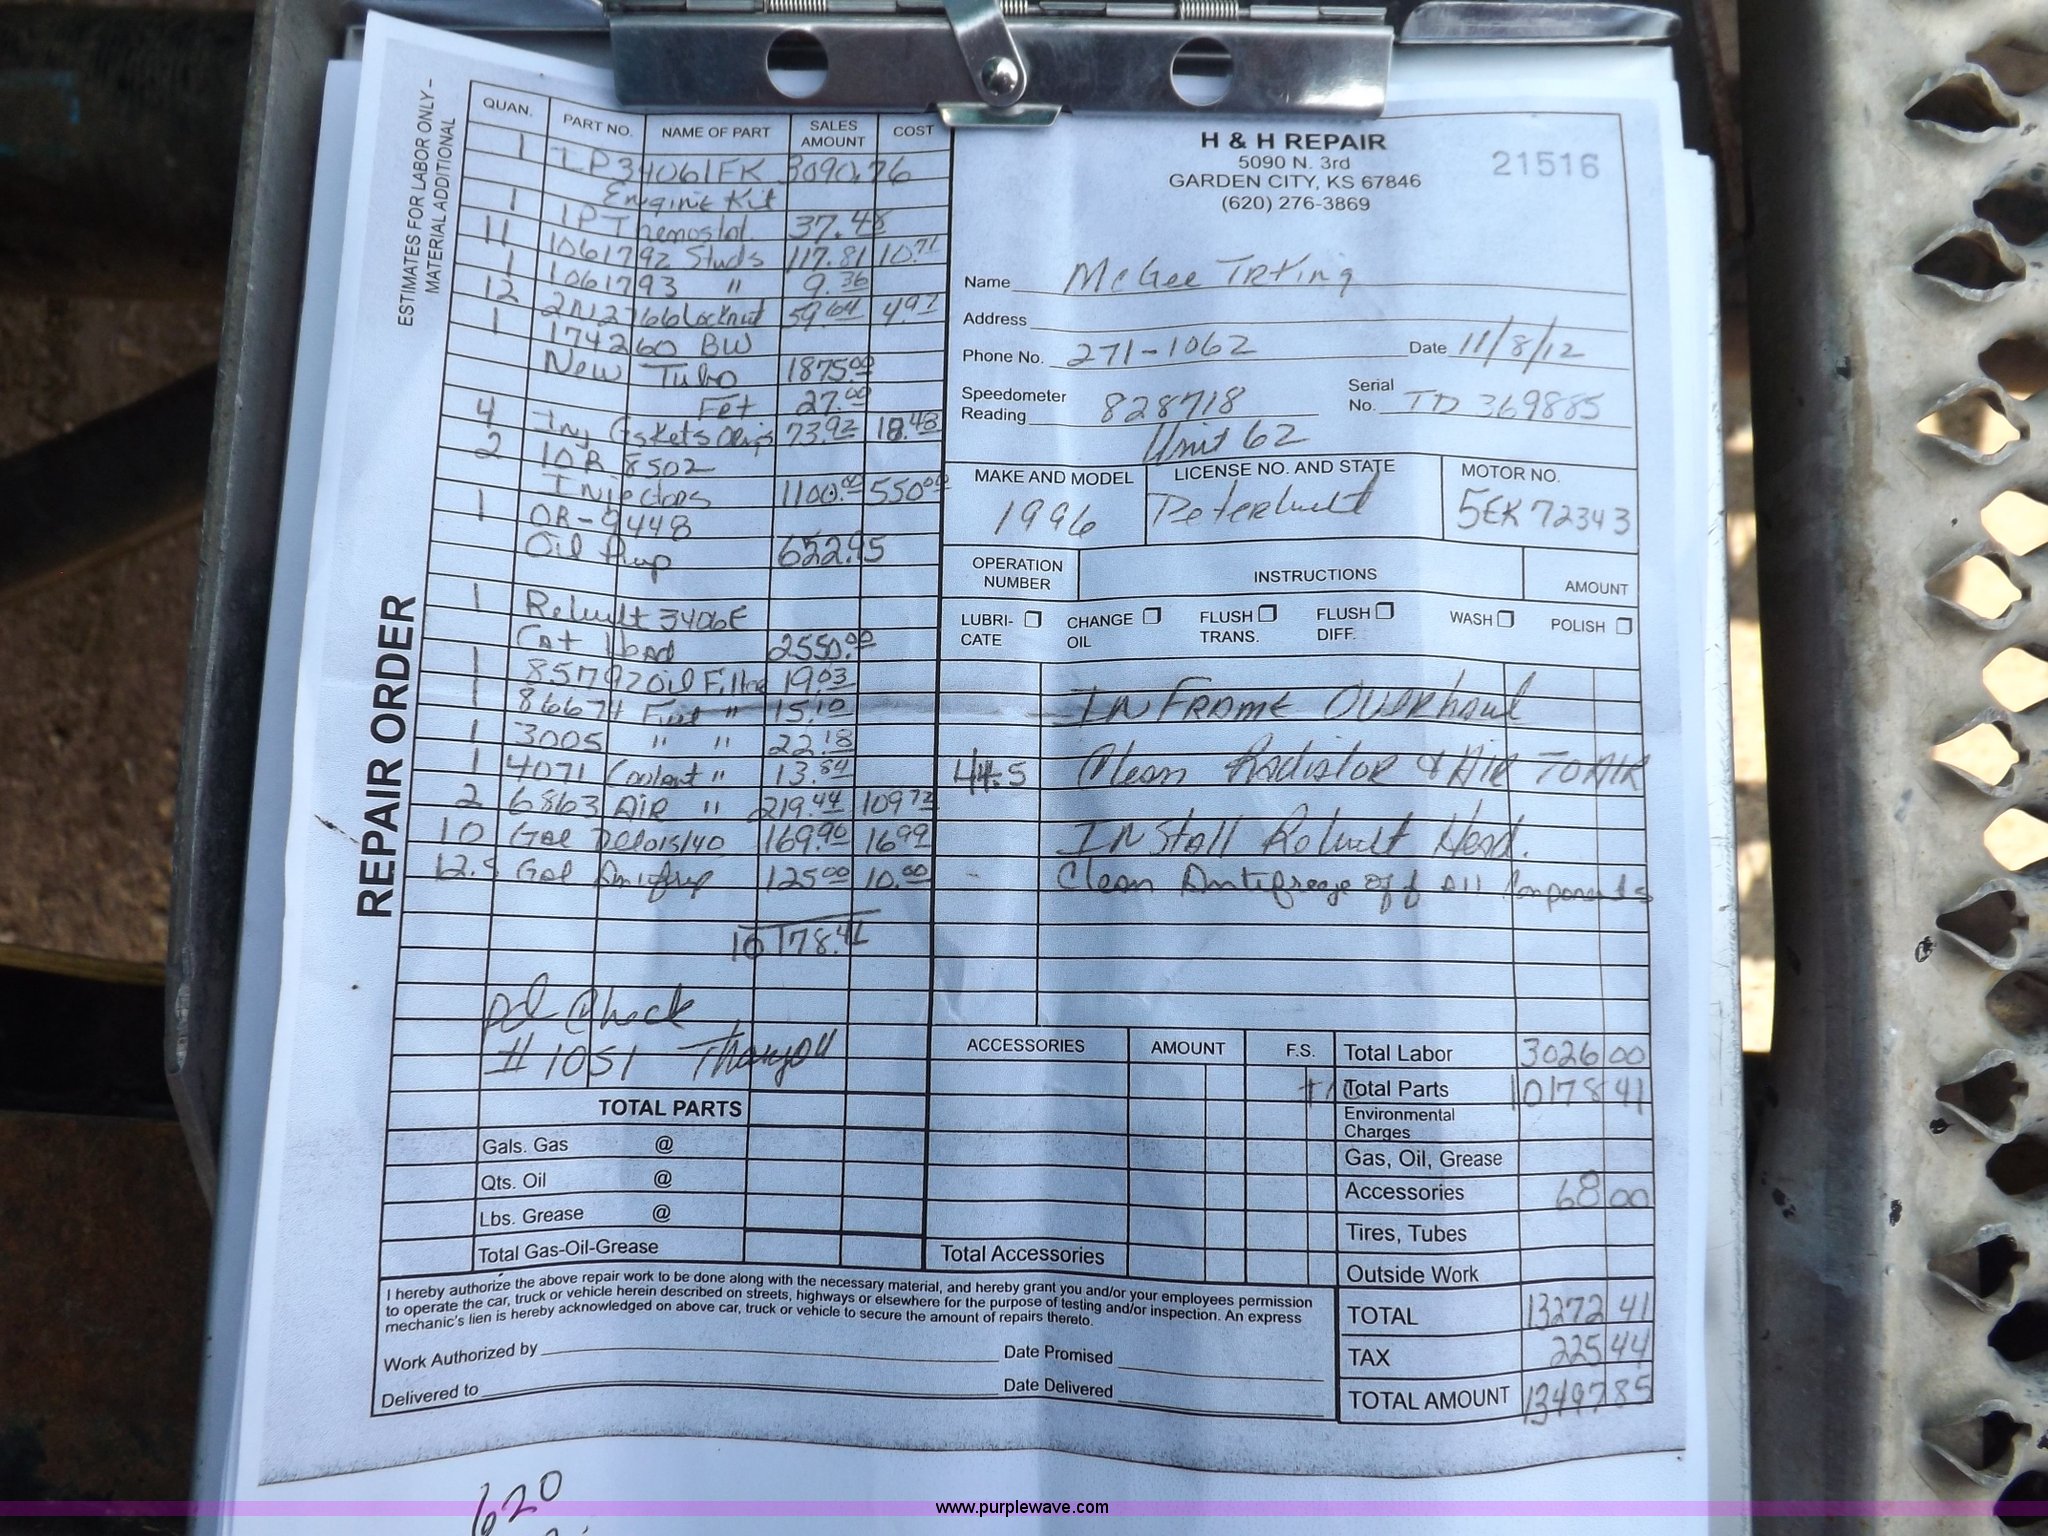 ESTIMATES FOR LABOR ONLY -
MATERIAL ADDITIONAL
REPAIR ORDER
QUAN. PART NO. NAME OF PART SALES AMOUNT COST
1 IP34061FK 3090.76
Engine Kit
1 1P Themostat 37.48
11 1061792 Studs 117.81 10.71
1 1061793 " 9.36
12 2N2766 Locknut 59.64 4.97
1 174260 BW
New Turbo 1875.00
Fet 27.00
4 Inj Gskets Orings 73.92 18.48
2 10R 8502
Injectors 1100.00 550.00
1 OR-9448
Oil Pump 652.95
1 Rebuilt 3406E
Cat Head 2550.00
1 85792 Oil Filter 19.03
1 86674 Fuel " 15.10
1 3005 " " 22.18
1 4071 Coolant " 13.84
2 6863 AIR " 219.44 109.72
10 Gal Delo 15/40 169.90 16.99
12.5 Gal Antifreeze 125.00 10.00
10178.41
pd Check
#1051 Thank you
TOTAL PARTS
Gals. Gas @
Qts. Oil @
Lbs. Grease @
Total Gas-Oil-Grease
H & H REPAIR
5090 N. 3rd
GARDEN CITY, KS 67846
(620) 276-3869
21516
Name McGee TRKing
Address
Phone No. 271-1062 Date 11/8/12
Speedometer Reading 828718 Serial No. TD 369885
Unit 62
MAKE AND MODEL LICENSE NO. AND STATE MOTOR NO.
1996 Peterbuilt 5EK72343
OPERATION NUMBER INSTRUCTIONS AMOUNT
LUBRI-CATE CHANGE OIL FLUSH TRANS. FLUSH DIFF. WASH POLISH
INFRAME OVERhaul
44.5 Clean Radiator & AIR TO AIR
INStall Rebuilt Head.
Clean Antifreeze off All Components
ACCESSORIES AMOUNT F.S.
Total Accessories
Total Labor 3026 00
Total Parts 10178 41
Environmental Charges
Gas, Oil, Grease
Accessories 68 00
Tires, Tubes
Outside Work
TOTAL 13272 41
TAX 225 44
TOTAL AMOUNT 13497 85
I hereby authorize the above repair work to be done along with the necessary material, and hereby grant you and/or your employees permission
to operate the car, truck or vehicle herein described on streets, highways or elsewhere for the purpose of testing and/or inspection. An express
mechanic's lien is hereby acknowledged on above car, truck or vehicle to secure the amount of repairs thereto.
Work Authorized by Date Promised
Delivered to Date Delivered
620
www.purplewave.com